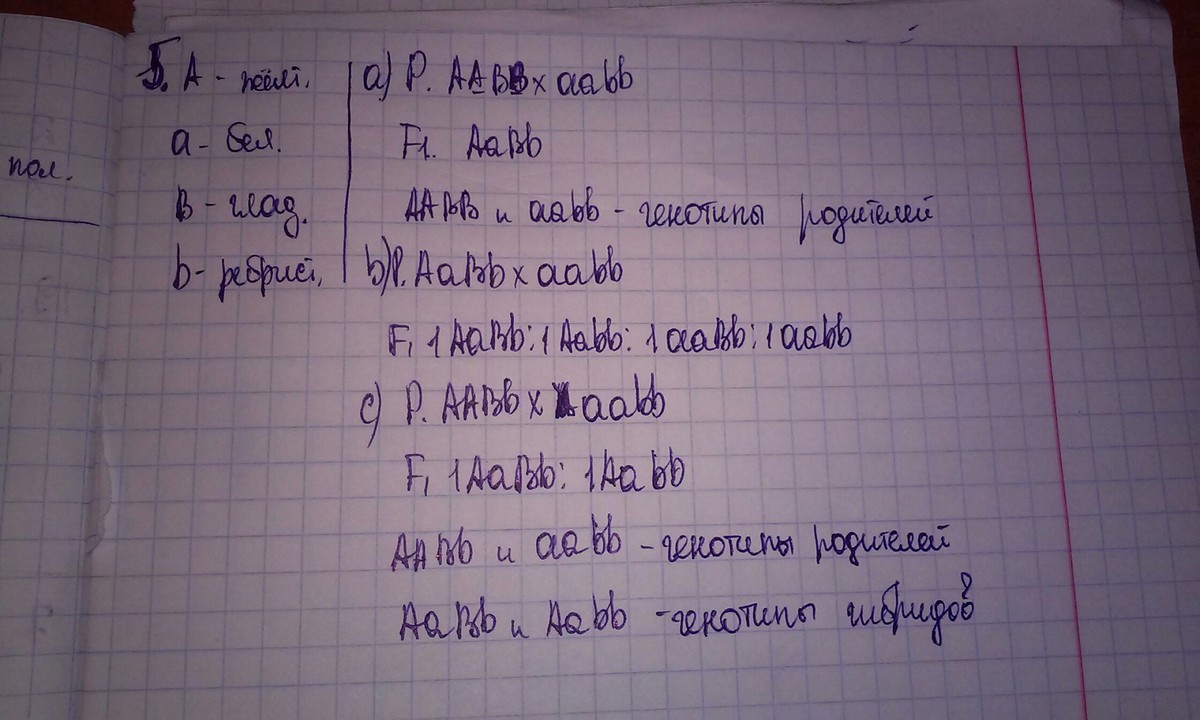 пол.
5. A - жёлт.
a - бел.
B - глад.
b - ребрист.
a) P. AABB x aabb
F1. AaBb
AABB и aabb - генотипы родителей
b) P. AaBb x aabb
F1 1AaBb : 1Aabb : 1aaBb : 1aabb
c) P. AABb x aabb
F1 1AaBb : 1Aabb
AABb и aabb - генотипы родителей
AaBb и Aabb - генотипы гибридов